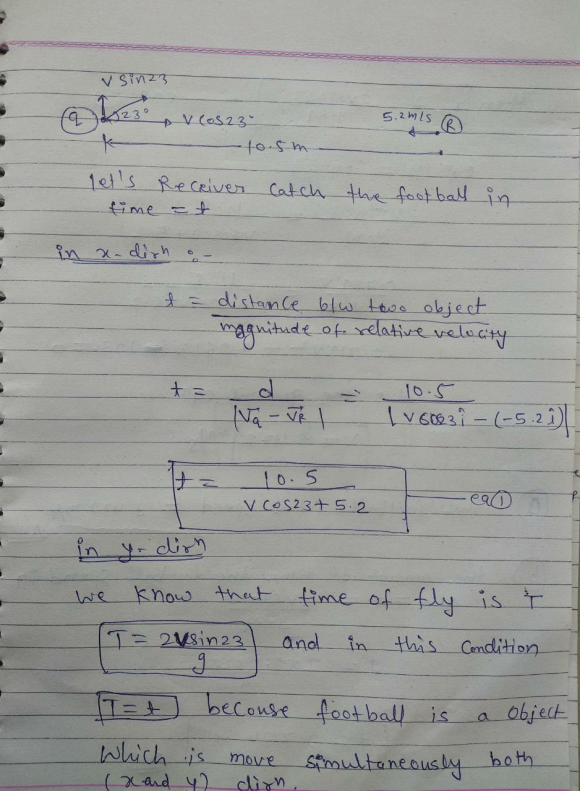 v sin23
q 23° v cos23° 5.2m/s R
10.5m
let's Receiver Catch the football in
time = t
in x-dirⁿ :-
t = distance b/w two object
magnitude of relative velocity
t = d = 10.5
|Vq - VR| |V cos23 î - (-5.2 î)|
t = 10.5 eq①
V cos23 + 5.2
in y-dirⁿ
we know that time of fly is T
T = 2Vsin23 and in this Condition
g
T = t becouse football is a object
Which is move simultaneously both
(x and y) dirⁿ.